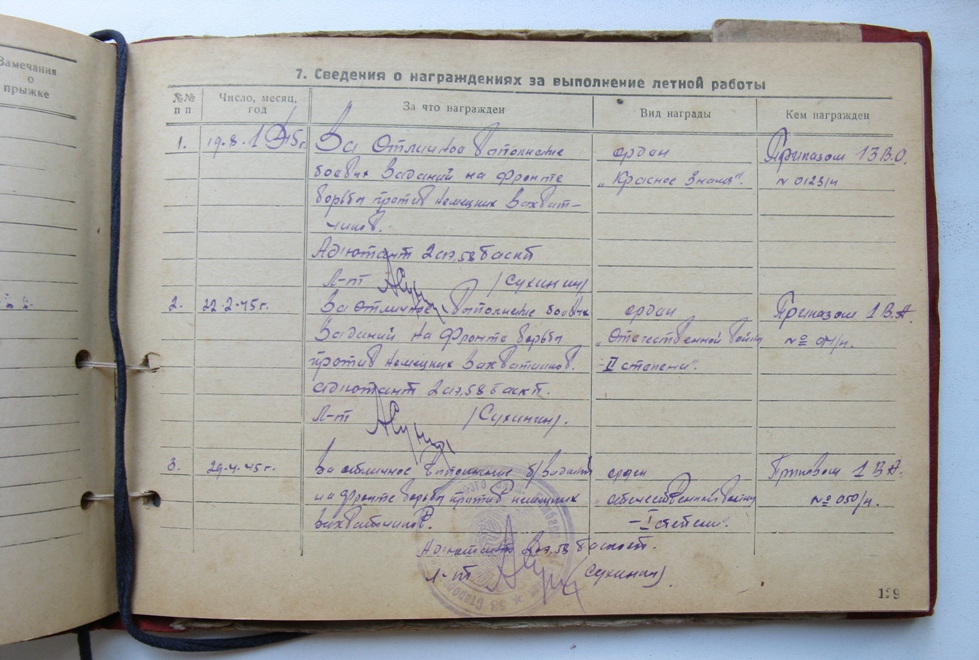 Замечания
о
прыжке
7. Сведения о награждениях за выполнение летной работы
№№ п п
Число, месяц, год
За что награжден
Вид награды
Кем награжден
1. 19.8.1945г. За Отличное выполнение орден Приказом 1 З.В.О.
боевых заданий на фронте „Красное Знамя". № 0123/н
борьбы против немецких захват-
чиков.
Адъютант 2 аэ, 58 баскп
Л-нт /Сухинин/
2. 22.2.45г. За Отличное выполнение боевых орден Приказом 1 В.А.
Заданий на Фронте борьбы „Отечественной войны № 04/н.
против немецких Захватчиков. II степени".
адъютант 2 аэ, 58 баскп.
Л-нт /Сухинин/.
3. 29.4.45г. За отличное выполнение б/заданий орден Приказом 1 В.А.
на фронте борьбы против немецких „отечественной войны № 050/н.
захватчиков. – I степени".
Адъютант 2 аэ, 58
л-нт Сухинин/
129